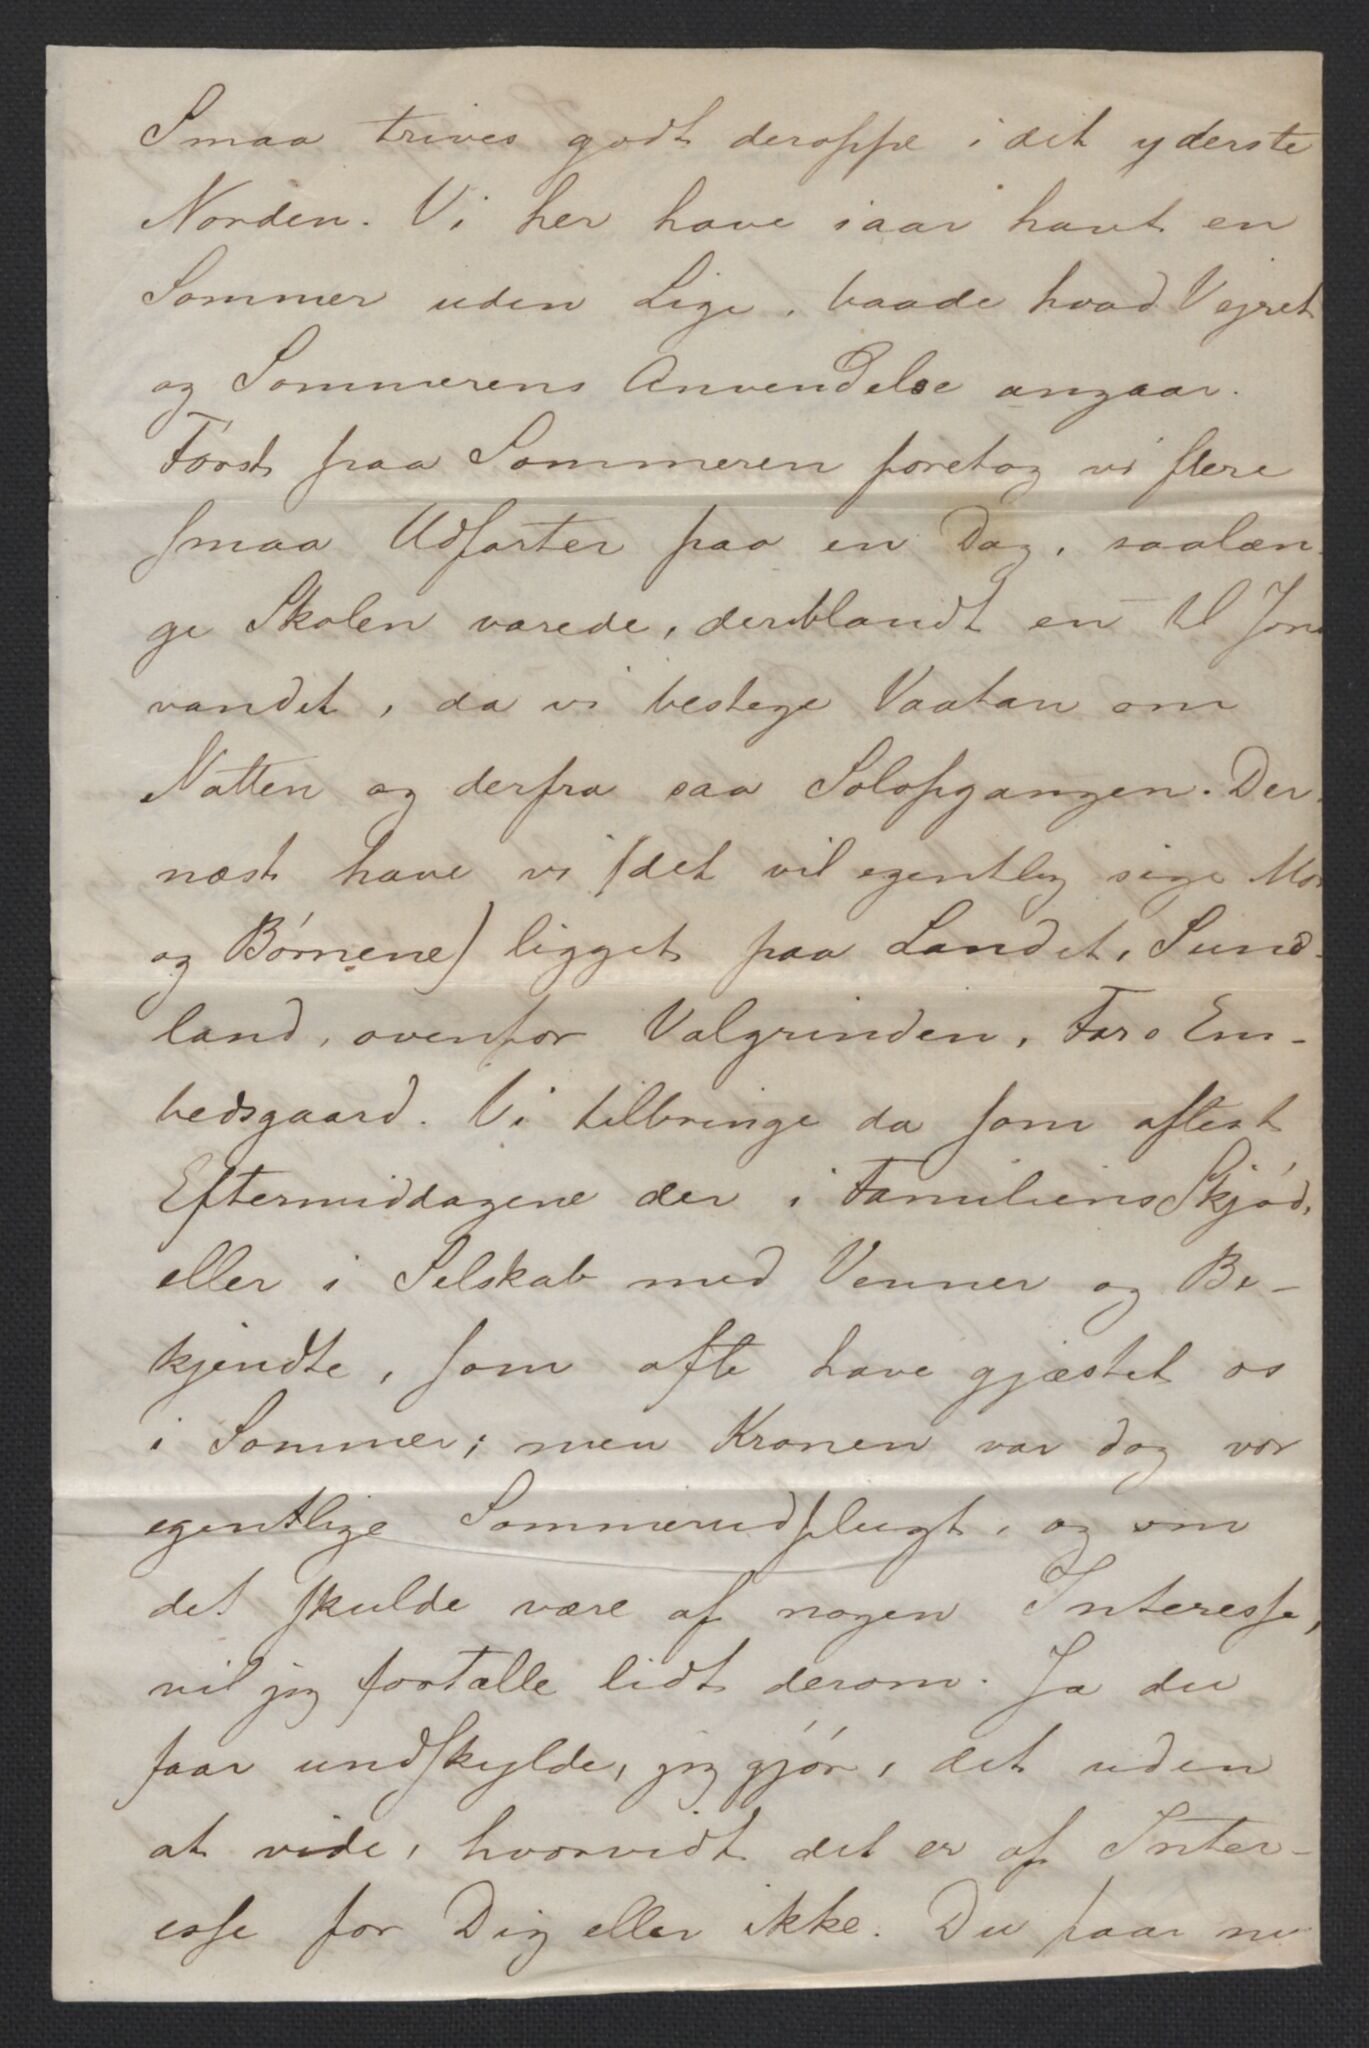 Smaa trives godt deroppe i det yderste
Norden. Vi her have iaar havt en
Sommer uden Lige, baade hvad Vejret
og Sommerens Anvendelse angaar.
Først paa Sommeren foretog vi flere
smaa Udfarter paa en Dag, saalæn-
ge Skolen varede, deriblandt en til Jons
vandet, da vi bestege Vaatan om
Natten og derfra saa Solopgangen. Der-
næst have vi (det vil egentlig sige Mor
og Børnene) ligget paa Landet, Sund-
land, ovenfor Valgrinden, Fars Em-
bedsgaard. Vi tilbringe da som oftest
Eftermiddagene der i Familiens Skjød,
eller i Selskab med Venner og Be-
kjendte, som ofte have gjæstet os
i Sommer; men Kronen var dog vor
egentlige Sommerudflugt, og om
det skulde være af nogen Interesse,
vil jeg fortælle lidt derom. Ja du
faar undskylde, jeg gjør, det uden
at vide, hvorvidt det er af Inter-
esse for Dig eller ikke. Du faar nu